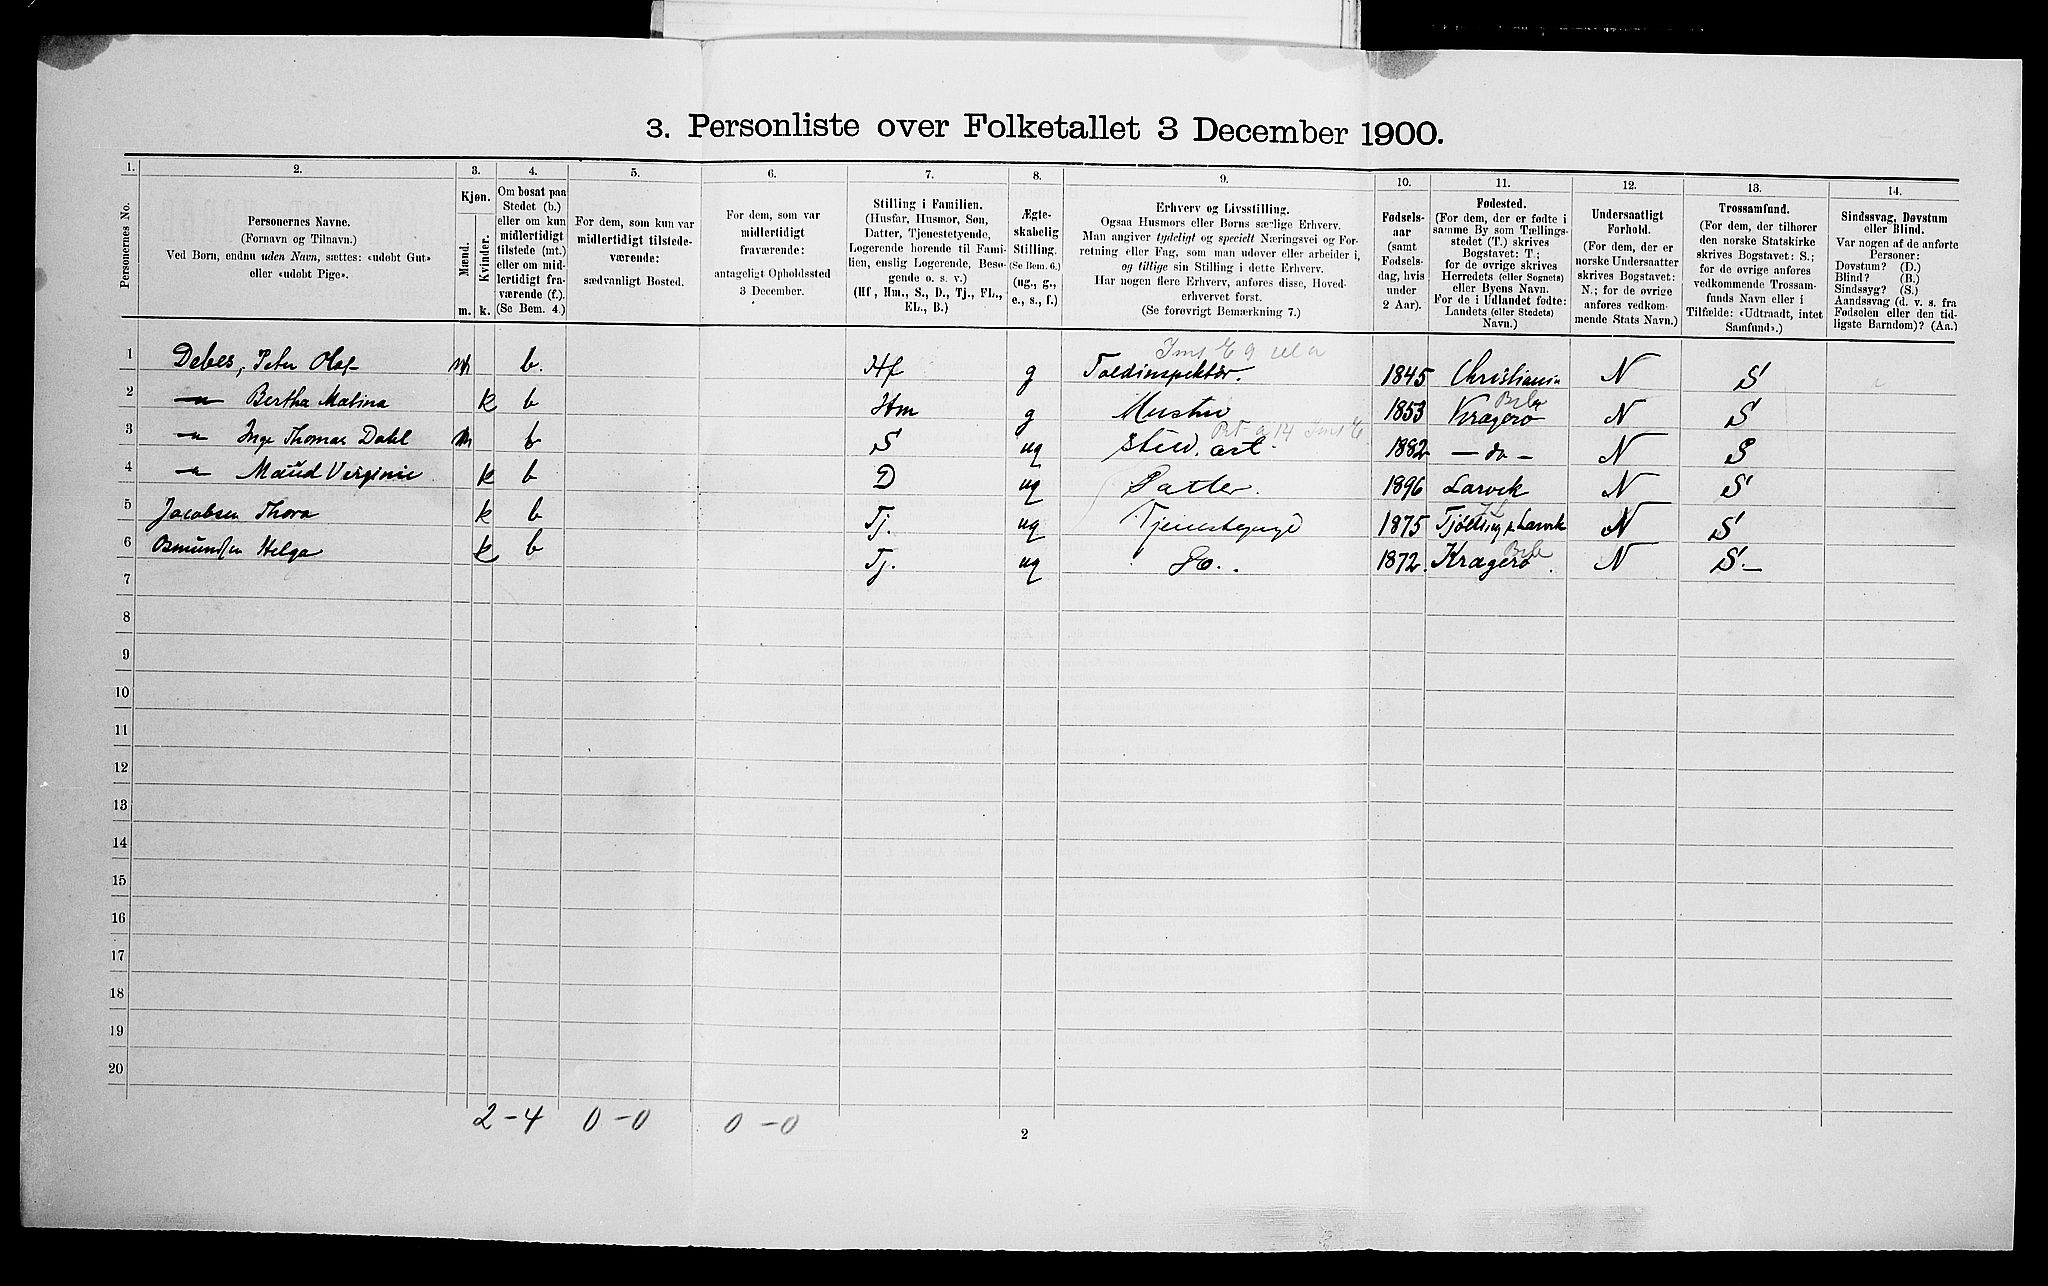 3. Personliste over Folketallet 3 December 1900.
1. 2. 3. 4. 5. 6. 7. 8. 9. 10. 11. 12. 13. 14.
Personernes No.
Personernes Navne.
(Fornavn og Tilnavn.)
Ved Børn, endnu uden Navn, sættes: «udøbt Gut»
eller «udøbt Pige».
Kjøn.
Mænd.
Kvinder.
m. k.
Om bosat paa
Stedet (b.)
eller om kun
midlertidigt
tilstede (mt.)
eller om mid-
lertidigt fra-
værende (f.).
(Se Bem. 4.)
For dem, som kun var
midlertidigt tilstede-
værende:
sædvanligt Bosted.
For dem, som var
midlertidigt
fraværende:
antageligt Opholdssted
3 December.
Stilling i Familien.
(Husfar, Husmor, Søn,
Datter, Tjenestetyende,
Logerende hørende til Fami-
lien, enslig Logerende, Besø-
gende o. s. v.)
(Hf, Hm., S., D., Tj., FL.,
EL., B.)
Ægte-
skabelig
Stilling.
(Se Bem. 6.)
(ug., g.,
e., s., f.)
Erhverv og Livsstilling.
Ogsaa Husmors eller Børns særlige Erhverv.
Man angiver tydeligt og specielt Næringsvei og For-
retning eller Fag, som man udøver eller arbeider i,
og tillige sin Stilling i dette Erhverv.
Har nogen flere Erhverv, anføres disse, Hoved-
erhvervet først.
(Se forøvrigt Bemærkning 7.)
Fødsels-
aar
(samt
Fødsels-
dag, hvis
under
2 Aar).
Fødested.
(For dem, der er fødte i
samme By som Tællings-
stedet (T.) skrives
Bogstavet: T.;
for de øvrige skrives
Herredets (eller Sognets)
eller Byens Navn.
For de i Udlandet fødte:
Landets (eller Stedets)
Navn.)
Undersaatligt
Forhold.
(For dem, der er
norske Undersaatter
skrives Bogstavet:
N.; for de øvrige
anføres vedkom-
mende Stats Navn.)
Trossamfund.
(For dem, der tilhører
den norske Statskirke
skrives Bogstavet: S.;
for de øvrige anføres
vedkommende Trossam-
funds Navn eller i
Tilfælde: «Udtraadt, intet
Samfund».)
Sindssvag, Døvstum
eller Blind.
Var nogen af de anførte
Personer:
Døvstum? (D.)
Blind? (B.)
Sindssyg? (S.)
Aandssvag (d. v. s. fra
Fødselen eller den tid-
ligste Barndom)? (Aa.)
1 Debes, Peter Olaf m b. Hf g Toldinspektør. 1845 Christiania N S
2 —„— Bertha Matina k b Hm g Hustru 1853 Kragerø N S
3 —„— Inge Thomas Dahl m b S ug stud. art. 1882 — do — N S
4 —„— Maud Verginie k b D ug Datter. 1896 Larvik N S
5 Jacobsen Thora k b Tj. ug Tjenestepige 1875 Tjølling p Larvik N S
6 Osmundsen Helga k b Tj. ug Do.. 1872. Kragerø. N S.—
7
8
9
10
11
12
13
14
15
16
17
18
19
20
2 – 4 0 – 0 0 – 0
2